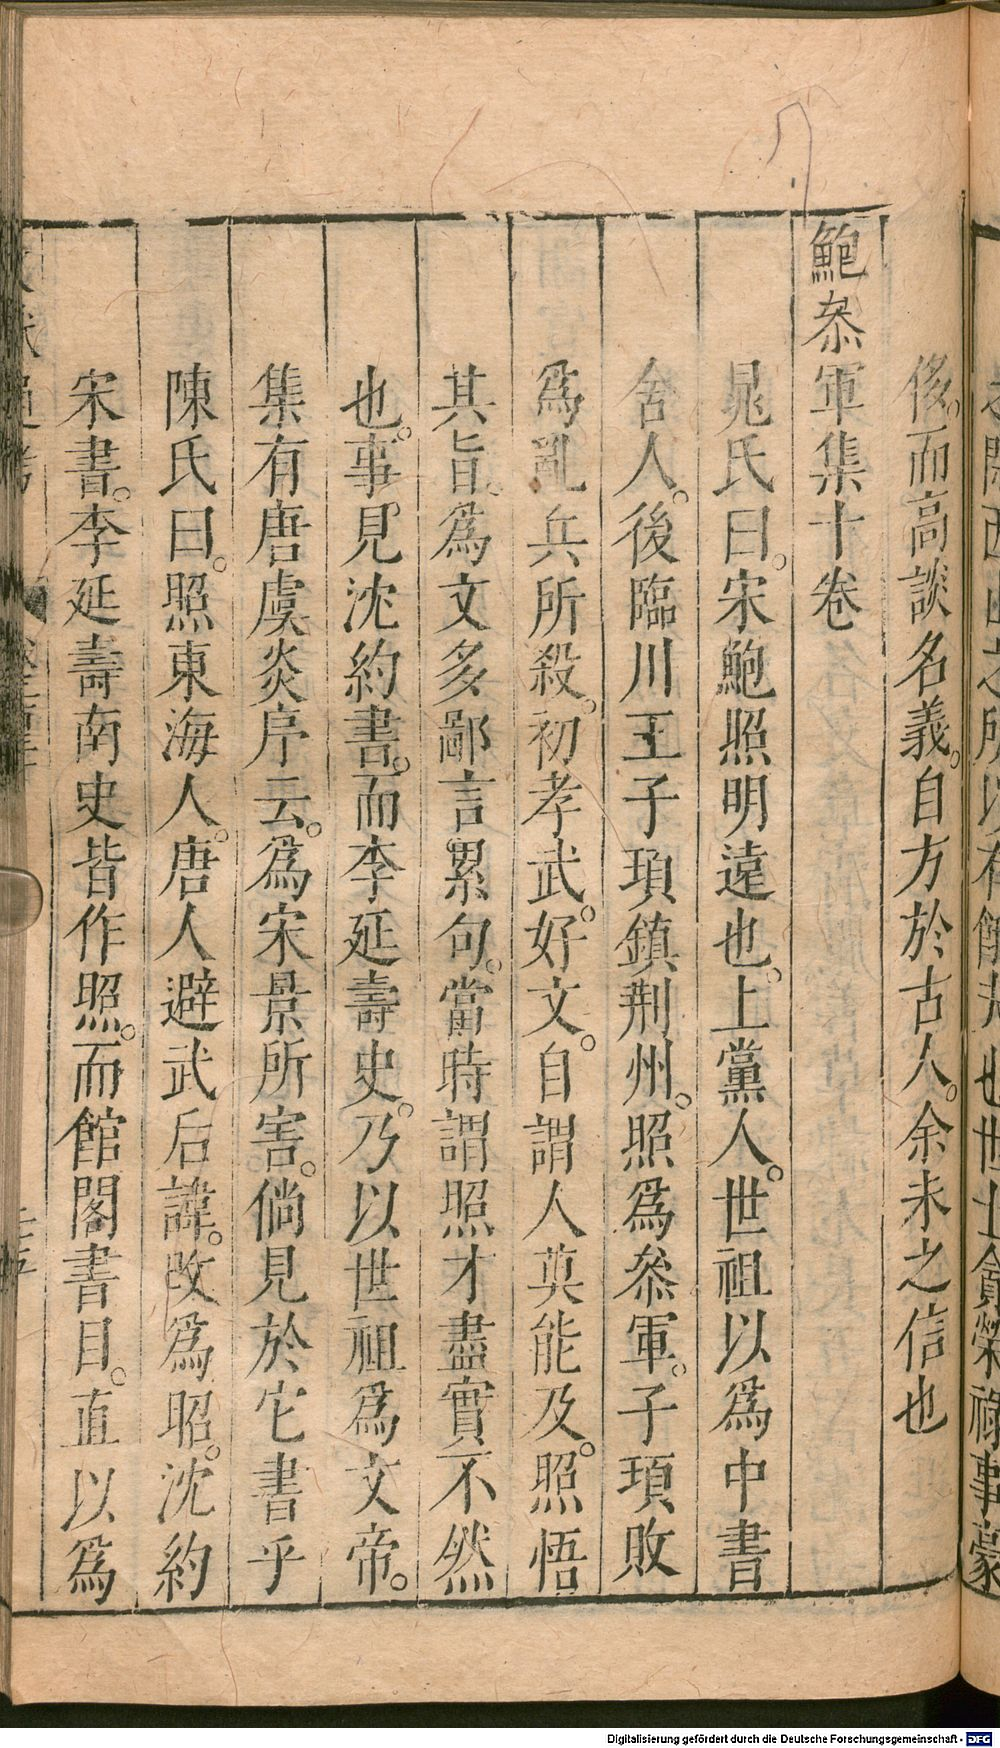 侈。而高談名義。自方於古人。余未之信也
鮑叅軍集十卷
晁氏曰。宋鮑照明遠也。上黨人。世祖以為中書
舍人。後臨川王子頊鎮荆州。照為叅軍。子頊敗
為亂兵所殺。初孝武。好文。自謂人莫能及。照悟
其旨。為文多鄙言累句。當時謂照才盡實不然
也。事見沈約書。而李延壽史。乃以世祖為文帝。
集有唐虞炎序云。為宋景所害。倘見於它書乎
陳氏曰。照東海人。唐人避武后諱。改為昭。沈約
宋書。李延壽南史皆作照。而館閣書目。直以為
Digitalisierung gefördert durch die Deutsche Forschungsgemeinschaft - DFG